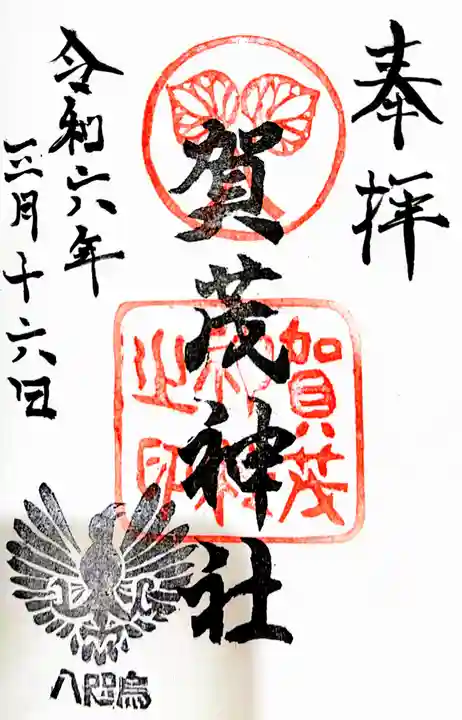 奉拝
賀茂神社
賀茂
神社
之印
令和六年
三月十六日
八咫烏